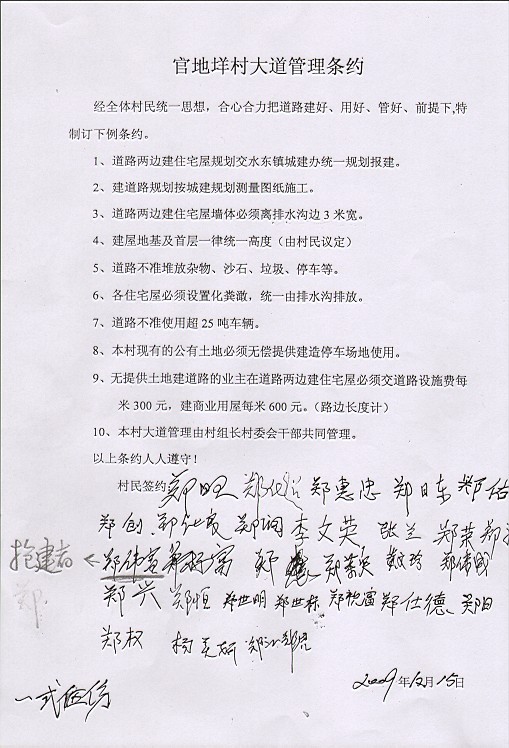 官地垟村大道管理条约
经全体村民统一思想，合心合力把道路建好、用好、管好、前提下,特
制订下例条约。
1、道路两边建住宅屋规划交水东镇城建办统一规划报建。
2、建道路规划按城建规划测量图纸施工。
3、道路两边建住宅屋墙体必须离排水沟边3米宽。
4、建屋地基及首层一律统一高度（由村民议定）
5、道路不准堆放杂物、沙石、垃圾、停车等。
6、各住宅屋必须设置化粪澉，统一由排水沟排放。
7、道路不准使用超25吨车辆。
8、本村现有的公有土地必须无偿提供建造停车场地使用。
9、无提供土地建道路的业主在道路两边建住宅屋必须交道路设施费每
米300元，建商业用屋每米600元。（路边长度计）
10、本村大道管理由村组长村委会干部共同管理。
以上条约人人遵守！
村民签约 郑旺 郑惠忠 郑日东
郑创 李文英 张兰 郑荣
抢建者 郑伟宽
郑 郑兴 郑恒 郑世明 郑世标 郑祝富 郑仕德、郑日
郑权
2009年12月15日
一式四份